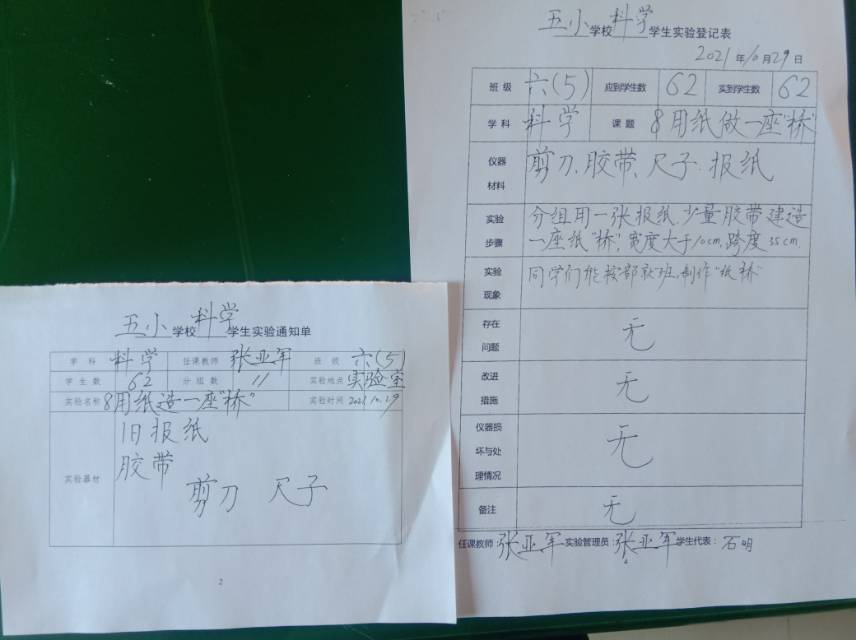 五小学校科学学生实验通知单
学科 科学 任课教师 张亚军 班级 六(5)
学生数 62 分组数 11 实验地点 实验室
实验名称 8用纸造一座“桥” 实验时间 2021.10.29
实验器材
旧报纸
胶带
剪刀 尺子
2
五小学校科学学生实验登记表
2021年10月29日
班级 六(5) 应到学生数 62 实到学生数 62
学科 科学 课题 8用纸做一座“桥”
仪器材料 剪刀、胶带、尺子、报纸
实验步骤
分组用一张报纸、少量胶带建造
一座纸“桥”,宽度大于10cm,跨度35cm.
实验现象 同学们能按部就班,制作“纸桥”
存在问题 无
改进措施 无
仪器损坏与处理情况 无
备注 无
任课教师:张亚军 实验管理员:张亚军 学生代表:石明